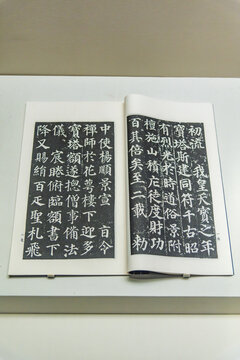 初流 我皇天寶之年
寶塔斯建同符千古昭
有烈光於時道俗景附
檀施山積庀徒度財功
百其倍矣至二載 勑
中使楊順景宣 旨令
禪師於花萼樓下迎多
寶塔額遂摠僧事備法
儀 宸睠俯臨額書下
降又賜絹百疋聖札飛